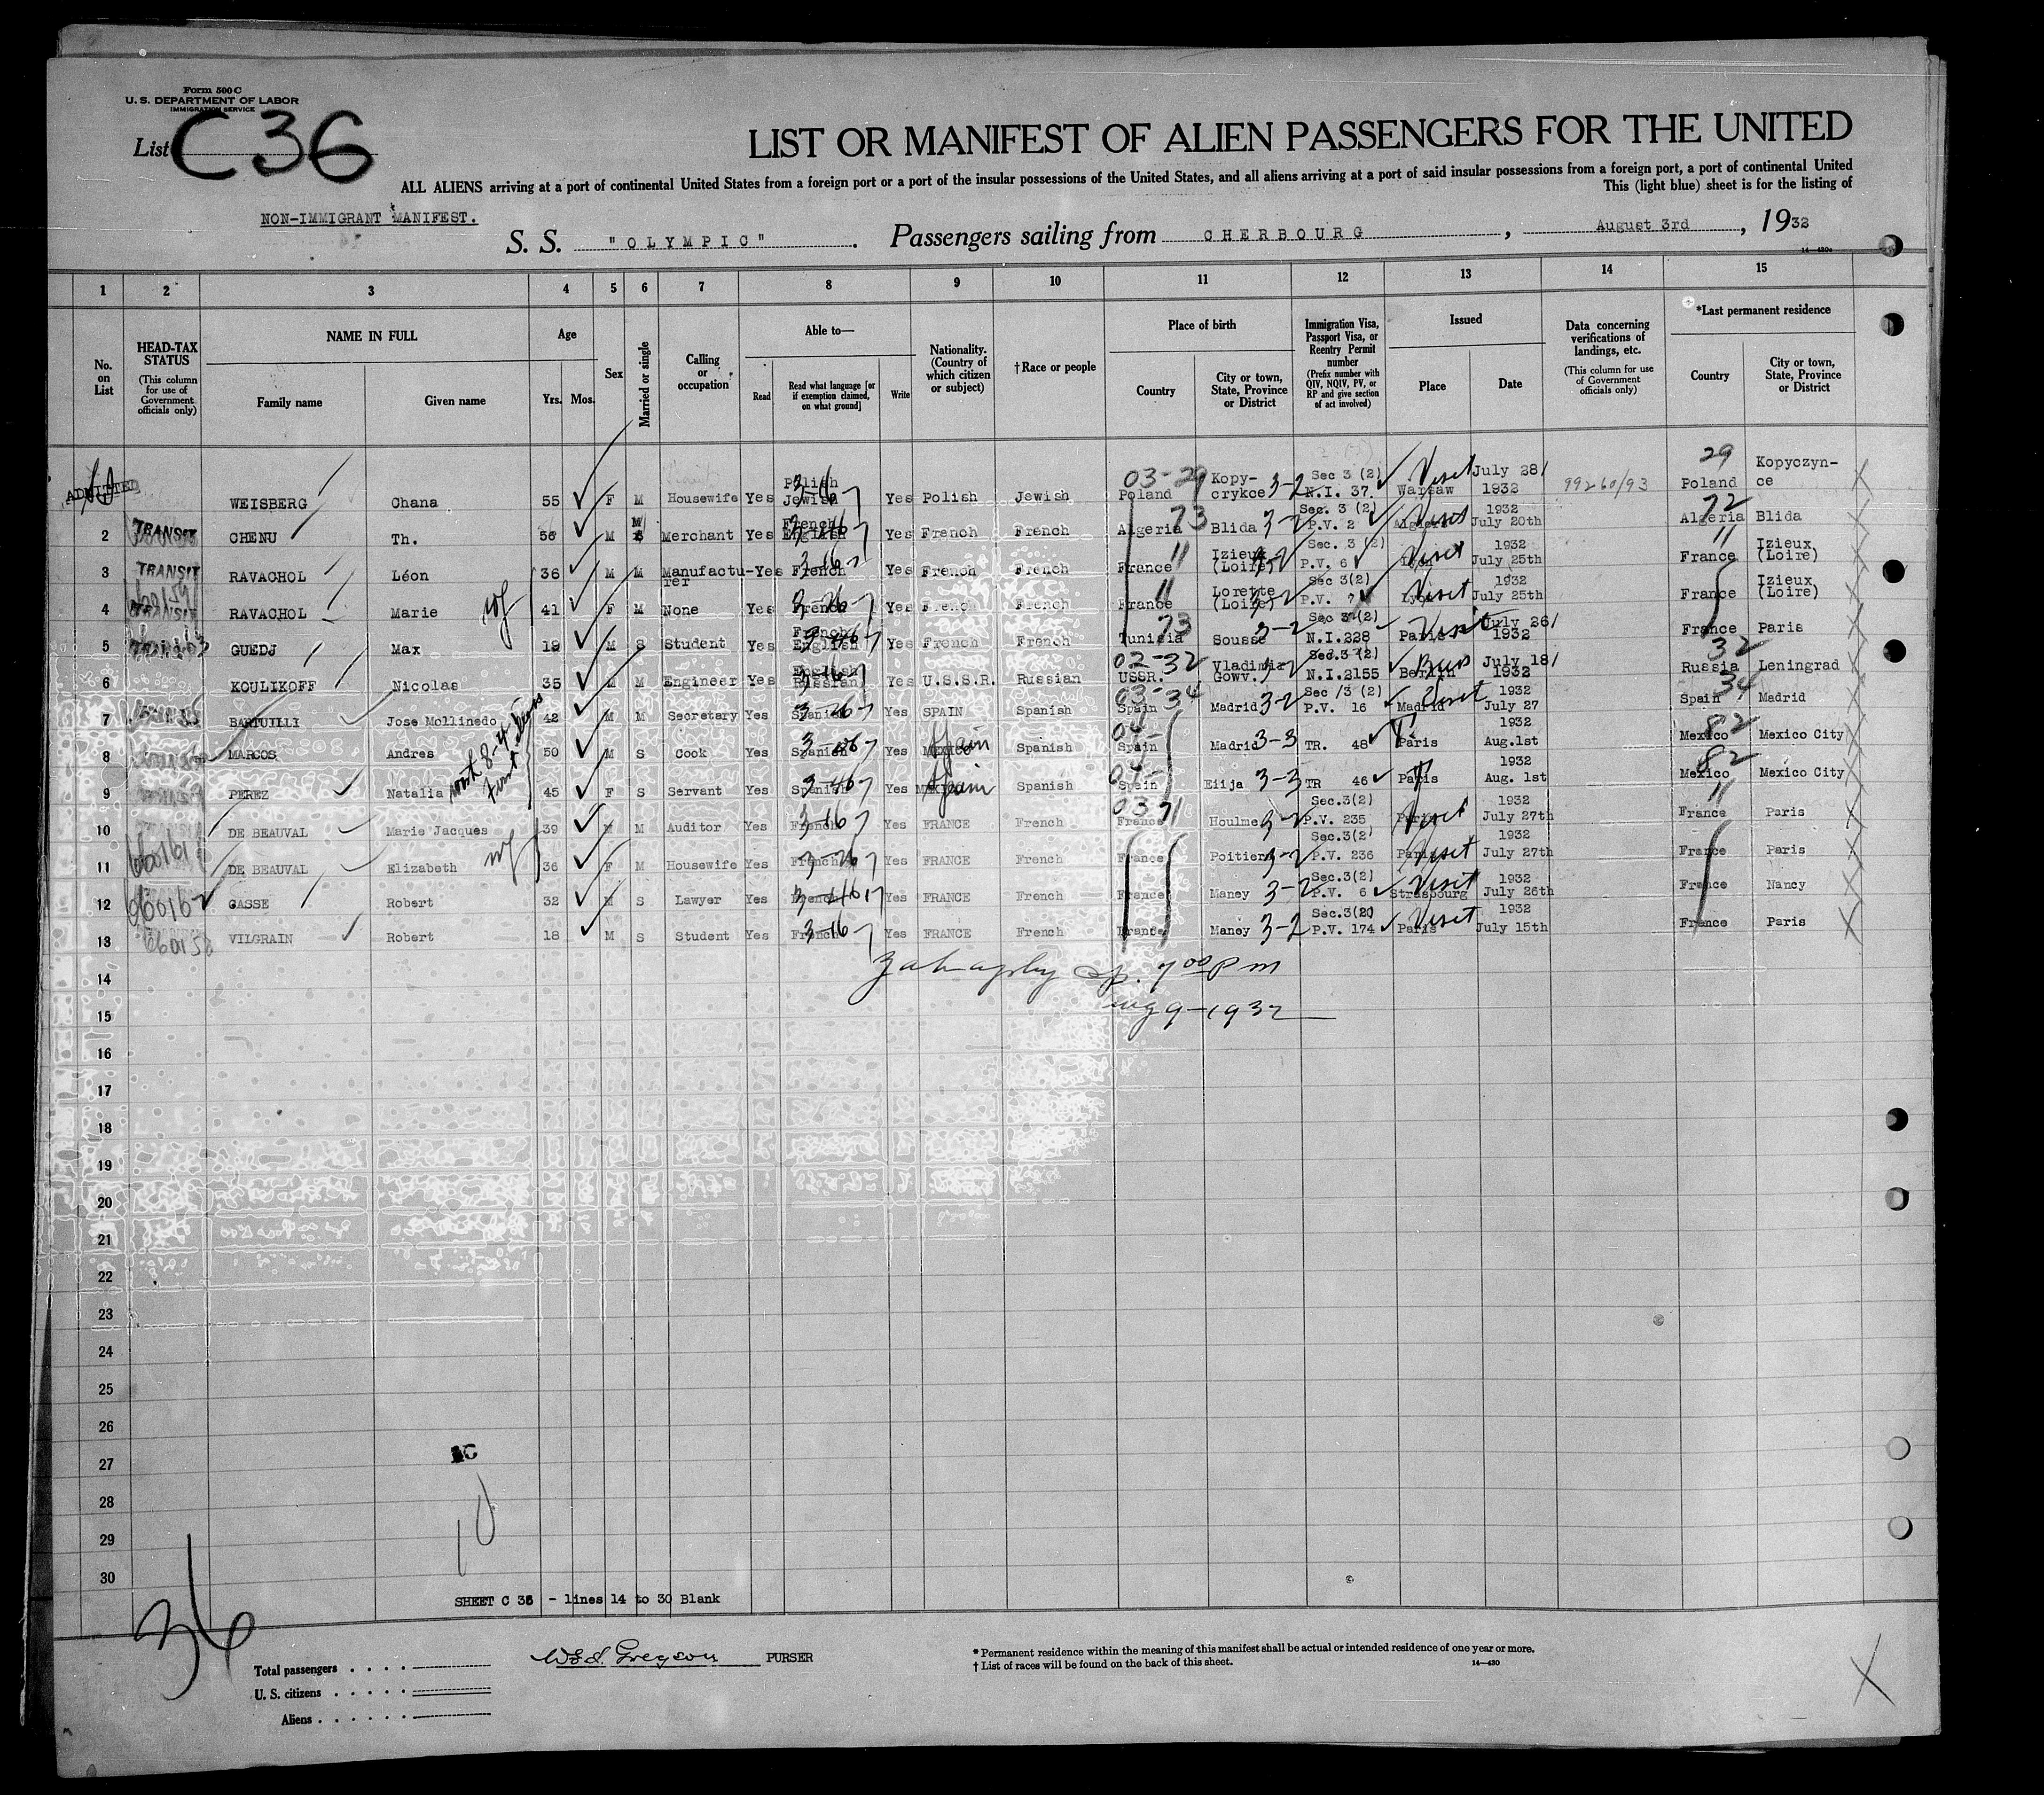 Form 500 C
U. S. DEPARTMENT OF LABOR
IMMIGRATION SERVICE
List C 36
LIST OR MANIFEST OF ALIEN PASSENGERS FOR THE UNITED
ALL ALIENS arriving at a port of continental United States from a foreign port or a port of the insular possessions of the United States, and all aliens arriving at a port of said insular possessions from a foreign port, a port of continental United
This (light blue) sheet is for the listing of
NON-IMMIGRANT MANIFEST.
S. S. "OLYMPIC" . Passengers sailing from CHERBOURG , August 3rd , 1932
14—430
1 2 3 4 5 6 7 8 9 10 11 12 13 14 15
No. on List
HEAD-TAX STATUS (This column for use of Government officials only)
NAME IN FULL Family name Given name
Age Yrs. Mos.
Sex
Married or single
Calling or occupation
Able to— Read Read what language [or if exemption claimed, on what ground] Write
Nationality. (Country of which citizen or subject)
†Race or people
Place of birth Country City or town, State, Province or District
Immigration Visa, Passport Visa, or Reentry Permit number (Prefix number with QIV, NQIV, PV, or RP and give section of act involved)
Issued Place Date
Data concerning verifications of landings, etc. (This column for use of Government officials only)
*Last permanent residence Country City or town, State, Province or District
ADMITTED WEISBERG Chana 55 F M Housewife Yes Polish Jewish Yes Polish Jewish 03-29 Poland Kopy-crykce 3-2 Sec 3 (2) N.I. 37. Visit Warsaw July 28/ 1932 99260/93 29 Poland Kopyczyn-ce
2 TRANSIT CHENU Th. 56 M M Merchant Yes French English Yes French French 73 Algeria Blida 3-2 Sec. 3 (2) P.V. 2 Visit 1932 July 20th 72 Algeria Blida
3 TRANSIT RAVACHOL Léon 36 M M Manufactu-rer Yes French Yes French French 11 France Izieux (Loire) Sec. 3 (2) P.V. 6 Visit Lyon 1932 July 25th 11 France Izieux (Loire)
4 TRANSIT RAVACHOL Marie wf 41 F M None Yes French Yes French French 11 France Lorette (Loire) Sec 3(2) P.V. 7 Visit Lyon 1932 July 25th France Izieux (Loire)
5 GUEDJ Max 19 M S Student Yes French English Yes French French 73 Tunisia Sousse 3-2 Sec 3(2) N.I.228 Visit Paris July 26/ 1932 France Paris
6 KOULIKOFF Nicolas 35 M M Engineer Yes English Russian Yes U.S.S.R. Russian 02-32 USSR. Vladimir Gowv. Sec.3(2) N.I.2155 Bus Berlin July 18/ 1932 32 Russia Leningrad
7 BARTUILLI Jose Mollinedo 42 M M Secretary Yes Spanish Yes SPAIN Spanish 03-34 Spain Madrid 3-2 Sec 3 (2) P.V. 16 Visit Madrid 1932 July 27 34 Spain Madrid
8 MARCOS Andres 50 M S Cook Yes Spanish Yes Mexico Spain Spanish 04 Spain Madrid 3-3 TR. 48 T Paris 1932 Aug.1st 82 Mexico Mexico City
9 PEREZ Natalia 45 F S Servant Yes Spanish Yes Spain Spanish 04 Spain Eiija 3-3 TR 46 T Paris 1932 Aug. 1st 82 Mexico Mexico City
10 DE BEAUVAL Marie Jacques 39 M M Auditor Yes French 3-16 Yes FRANCE French France Houlme 3-2 Sec.3(2) P.V. 235 Visit Paris 1932 July 27th 11 France Paris
11 DE BEAUVAL Elizabeth wf 36 F M Housewife Yes French Yes FRANCE French France Poitiers 3-2 Sec.3(2) P.V. 236 Visit Paris 1932 July 27th France Paris
12 GASSE Robert 32 M S Lawyer Yes French Yes FRANCE French France Maney 3-2 Sec.3(2) P.V. 6 Visit Strasbourg 1932 July 26th France Nancy
13 VILGRAIN Robert 18 M S Student Yes French 3-16 Yes FRANCE French France Maney 3-2 Sec.3(2) P.V. 174 Visit Paris 1932 July 15th France Paris
14 7 00 P m
15 Aug 9-1932
16
17
18
19
20
21
22
23
24
25
26
27
28
29
30
SHEET C 36 - lines 14 to 30 Blank
36
Gregson PURSER
Total passengers
U. S. citizens
Aliens
* Permanent residence within the meaning of this manifest shall be actual or intended residence of one year or more.
† List of races will be found on the back of this sheet.
14—430